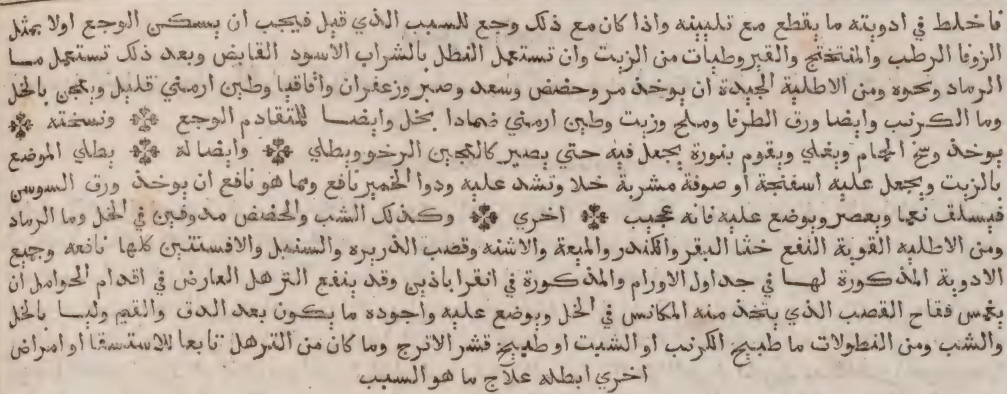 فاخلط في ادويته ما يقطع مع تليينه واذا كان مع ذلك وجع للسبب الذي قيل فيجب ان يسكن الوجع اولا بمثل
الزوفا الرطب والمفتختج والقيروطيات من الزيت وان تستعمل النطل بالشراب الاسود القابض وبعد ذلك تستعمل مـا
الرماد ونحوه ومن الاطلية الجيدة ان يوخذ مر وحضض وسعد وصبر وزعفران واقاقيا وطين ارمني قليل ويعجن بالخل
وما الكرنب وايضا ورق الطرفا وملح وزيت وطين ارمني ضمادا بخل وايضـا للمتقادم الوجع ونسخته
يوخذ وسخ الحمام ويغلي ويقوم بنورة يجعل فيه حتي يصير كالعجين الرخو ويطلي وايضا له يطلي الموضع
بالزيت ويجعل عليه اسفنجة او صوفة مشربة خلا وتشد عليه ودوا الخمير نافع ومما هو نافع ان يوخذ ورق السوسن
فيسلق نعما ويعصر ويوضع عليه فانه عجيب اخري وكذلك الشب والحضض مدوفين في الخل وما الرماد
ومن الاطليه القوية النفع خثا البقر والكندر والميعة والاشنه وقصب الذريره والسنبل والافسنتين كلها نافعه وجميع
الادوية المذكورة لهـا في جداول الاورام والمذكورة في انقراباذين وقد ينفع الترهل العارض في اقدام الحوامل ان
يغمس فقاح القصب الذي يتخذ منه المكانس في الخل ويوضع عليه واجوده ما يكون بعد الدق والقيموليـا بالخل
والشب ومن النطولات ما طبيخ الكرنب او الشبت او طبيخ قشر الاترج وما كان من الترهل تابعا للاستسقا او امراض
اخري ابطله علاج ما هو السبب